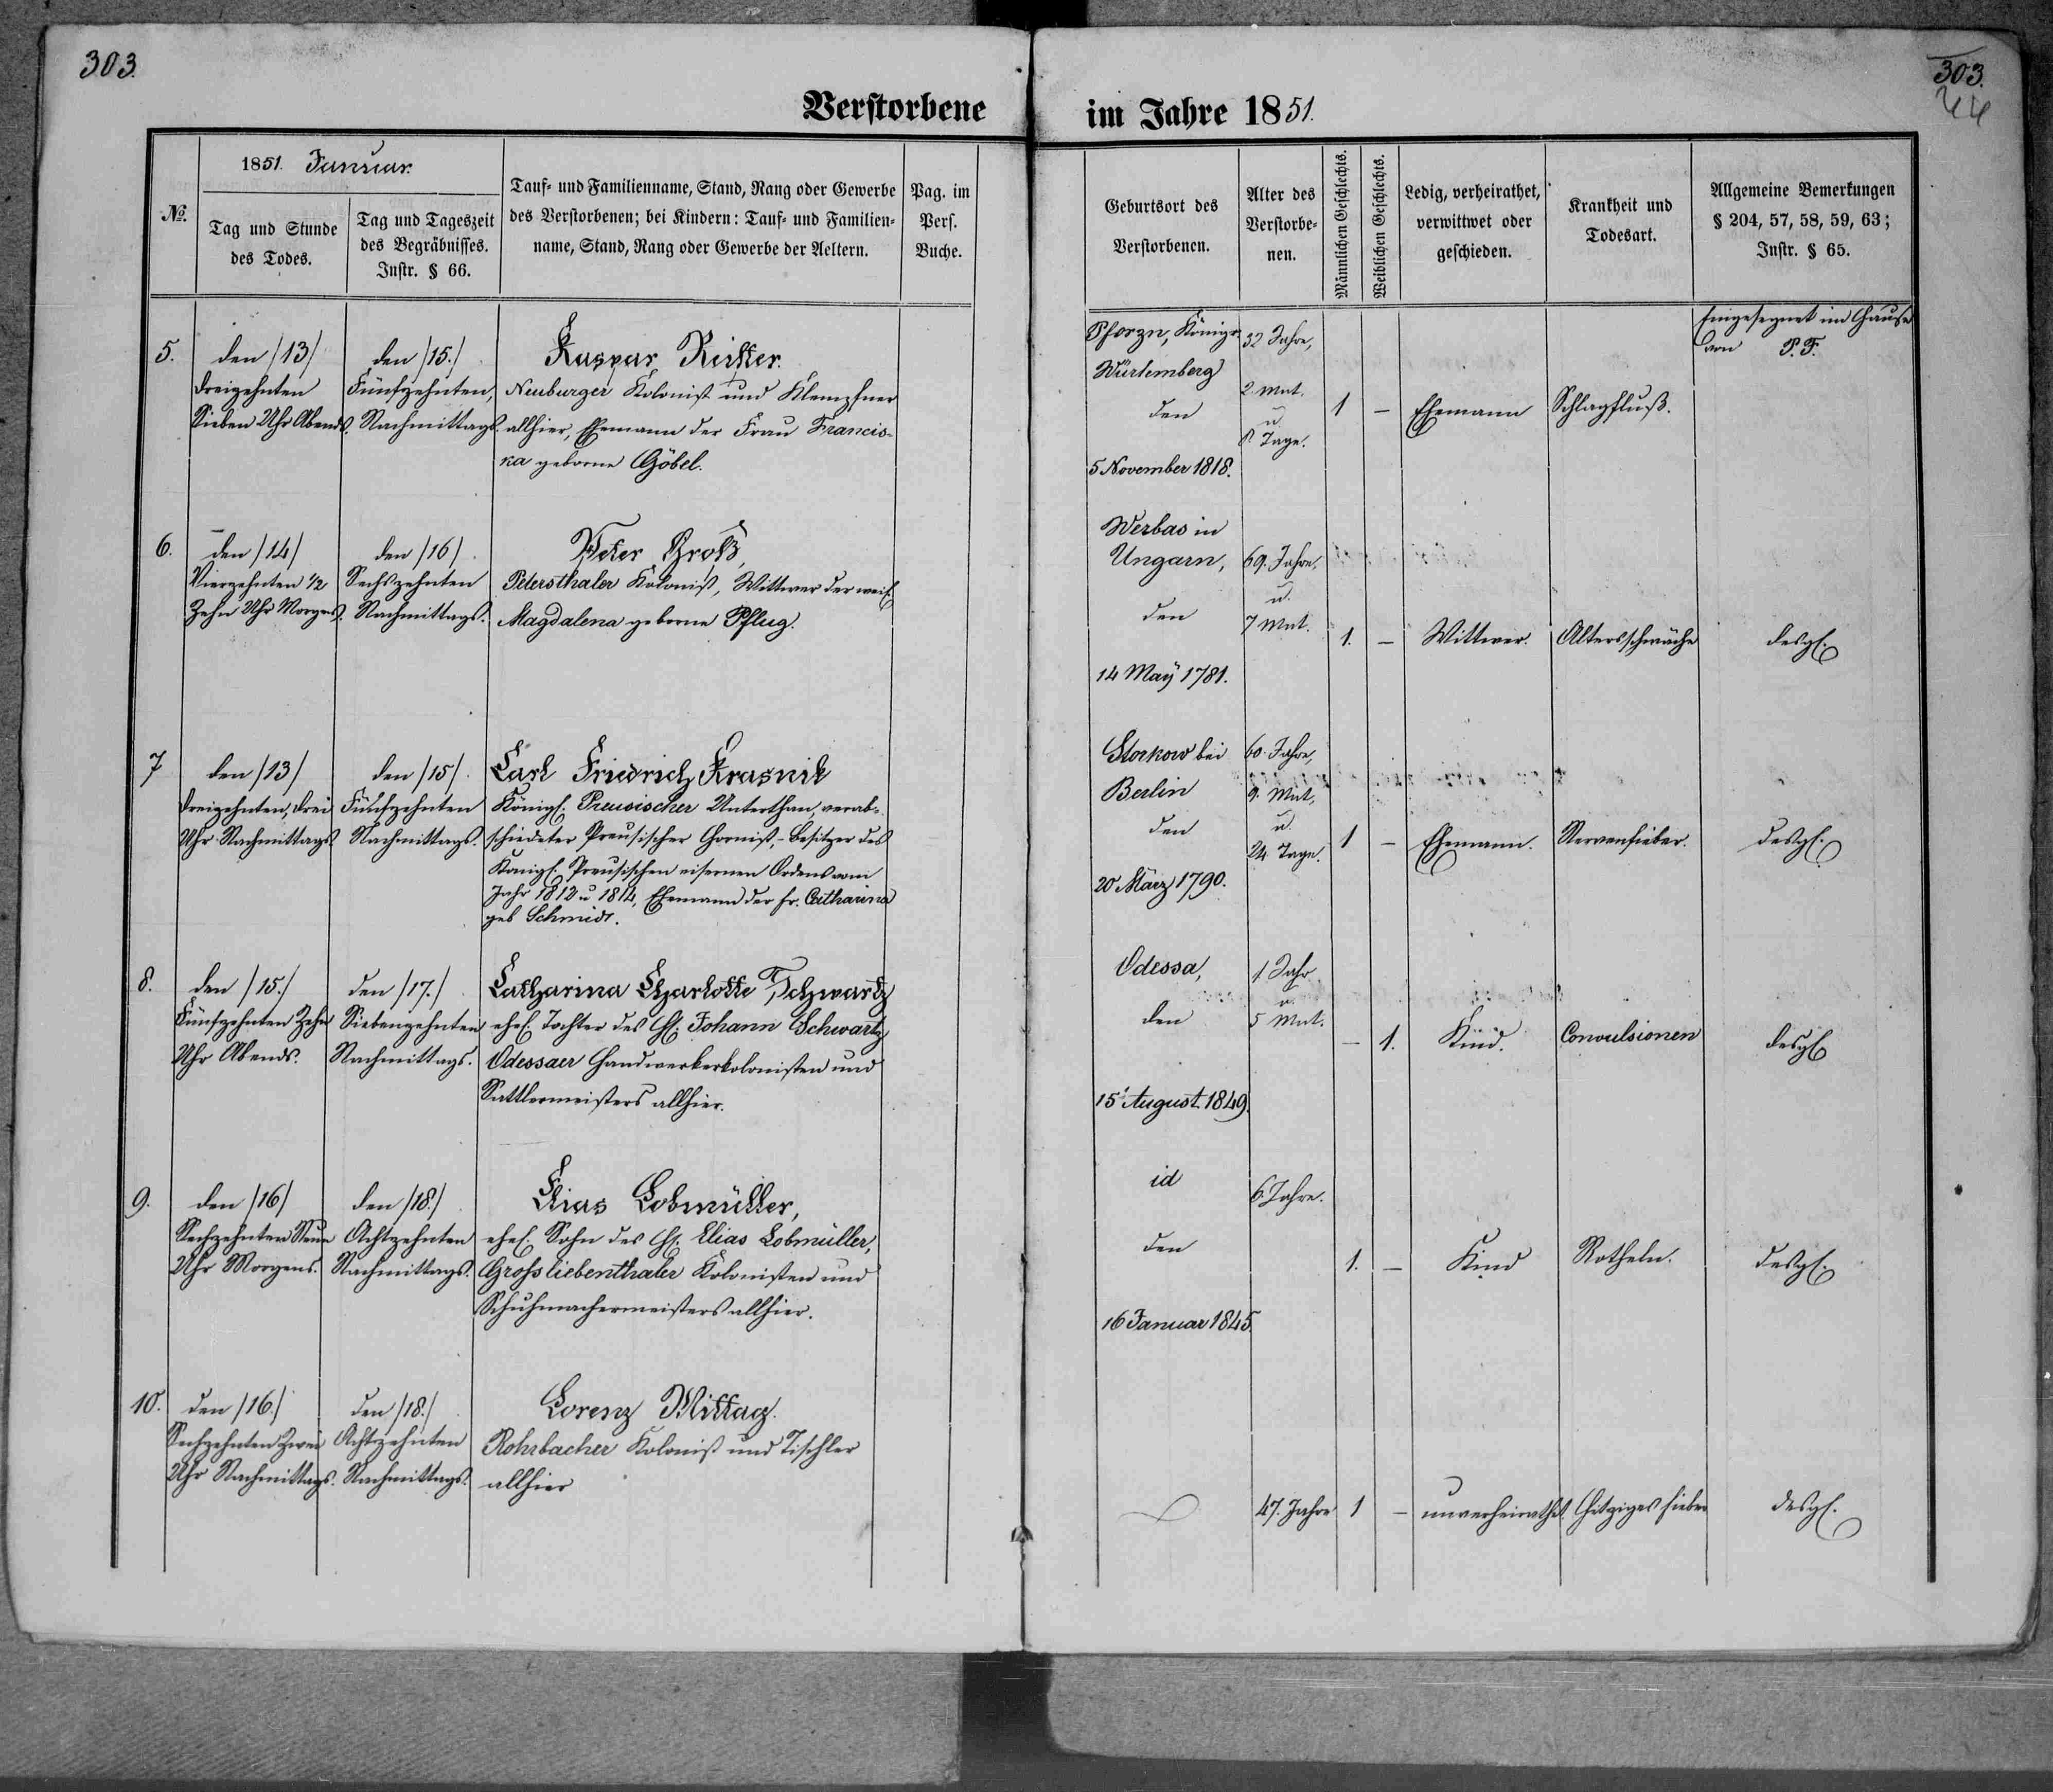 303.
303.
44
Verstorbene
im Jahre 1851.
№.
1851. Januar.
Tag und Stunde
des Todes.
Tag und Tageszeit
des Begräbnisses.
Instr. § 66.
Tauf- und Familienname, Stand, Rang oder Gewerbe
des Verstorbenen; bei Kindern: Tauf- und Familien-
name, Stand, Rang oder Gewerbe der Aeltern.
Pag. im
Pers.
Buche.
Geburtsort des
Verstorbenen.
Alter des
Verstorbe-
nen.
Männlichen Geschlechts.
Weiblichen Geschlechts.
Ledig, verheirathet,
verwittwet oder
geschieden.
Krankheit und
Todesart.
Allgemeine Bemerkungen
§ 204, 57, 58, 59, 63;
Instr. § 65.
5.
den /13/
Dreizehnten
Sieben Uhr Abends.
den /15./
Fünfzehnten,
Nachmittags.
Kaspar Richter.
Neuburger Kolonist und Klempfner
allhier, Ehemann der Frau Francis-
ka geborne Göbel.
Pforzn, Königr.
Würtemberg
den
5 November 1818.
32 Jahre,
2 Mnt.
u
8 Tage.
1
–
Ehemann
Schlagfluß.
Eingesegnet im Hause
von P. F.
6.
den /14/
Vierzehnten 1/2
Zehn Uhr Morgens.
den /16/
Sechszehnten
Nachmittags.
Peter Groß,
Petersthaler Kolonist, Wittwer der weil.
Magdalena geborne Pflug.
Werbas in
Ungarn,
den
14 Maÿ 1781.
69. Jahre,
u.
7 Mnt.
1.
–
Wittwer.
Altersschwäche
desgl.
7
den /13/
Dreizehnten, Drei
Uhr Nachmittags
den /15/.
Fünfzehnten
Nachmittags.
Carl Friedrich Krasnik
Königl. Preusischer Unterthan, verab-
schiedeter Preusischer Hornist, - Besitzer des
Königl. Preusischen eisernen Ordens vom
Jahr 1812 u 1814, Ehemann der Fr. Catharina
geb Schmidt.
Storkow bei
Berlin
den
20 März 1790.
60. Jahre,
9. Mnt,
u.
24 Tage.
1
–
Ehemann.
Nervenfieber.
desgl.
8.
den /15./
Fünfzehnten Zehn
Uhr Abends.
den /17./
Siebenzehnten
Nachmittags.
Catharina Charlotte Schwartz
ehel. Tochter des H. Johann Schwartz
Odessaer Handwerkerkolonisten und
Sattlermeisters allhier.
Odessa,
den
15 August 1849.
1 Jahr
u.
5 Mnt.
–
1.
Kind.
Convulsionen
desgl
9.
den /16/
Sechzehnten Neun
Uhr Morgens.
den /18./
Achtzehnten
Nachmittags.
Elias Lobmüller,
ehel. Sohn des H. Elias Lobmüller,
Grossliebenthaler Kolonisten und
Schuhmachermeisters allhier.
id
den
16 Januar 1845.
6 Jahre.
1.
–
Kind
Rotheln.
desgl.
10.
den /16./
Sechzehnten Zwei
Uhr Nachmittags.
den /18./
Achtzehnten
Nachmittags.
Lorenz Mittag.
Rohrbacher Kolonist und Tischler
allhier
47. Jahre
1
–
unverheirathet.
Hitziges Fieber
desgl.